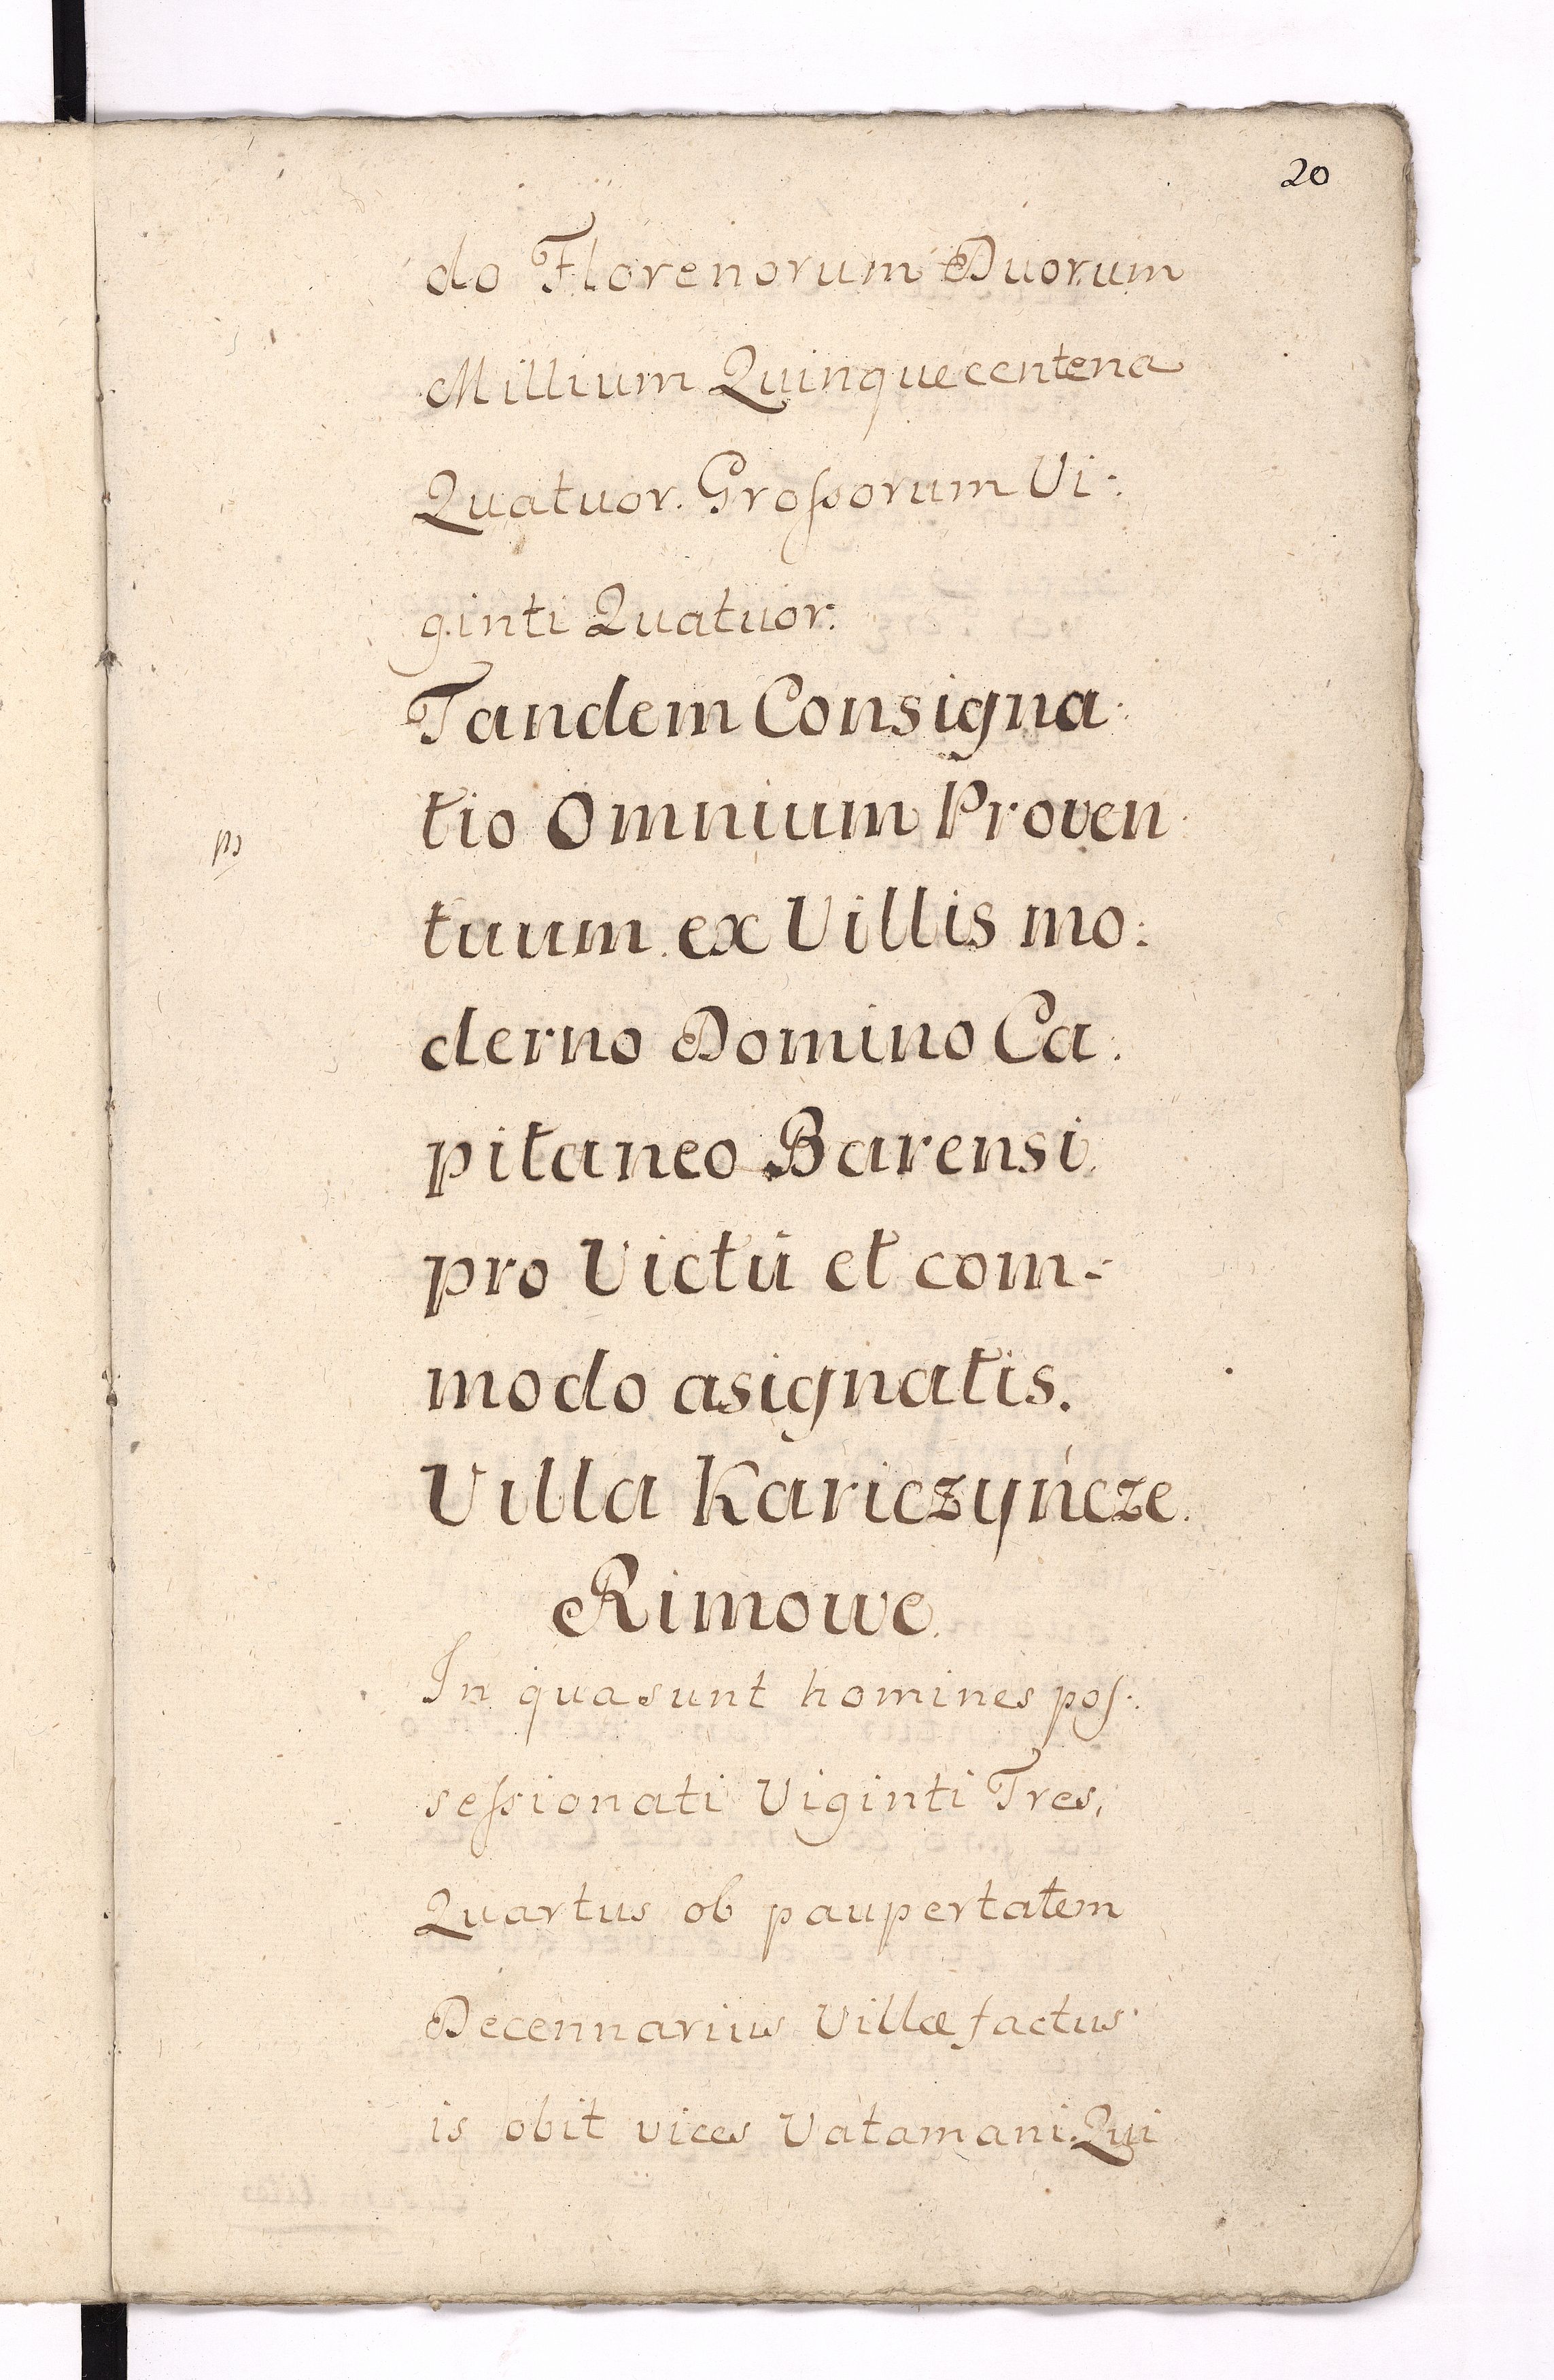 20
do Florenorum Duorum
Millium Quinquecentena
Quatuor. Groſsorum Vi:
ginti Quatuor.
Tandem Consigna:
tio Omnium Proven
tuum ex Villis mo:
derno Domino Ca:
pitaneo Barensi
pro Victú et com-
modo asignatis.
Villa Kariczyńcze.
Rimowe
In qua sunt homines poſ:
seſsionati Viginti Tres,
Quartus ob paupertatem
Decennarius Villæ factus
is obit vices Vatamani. Qui